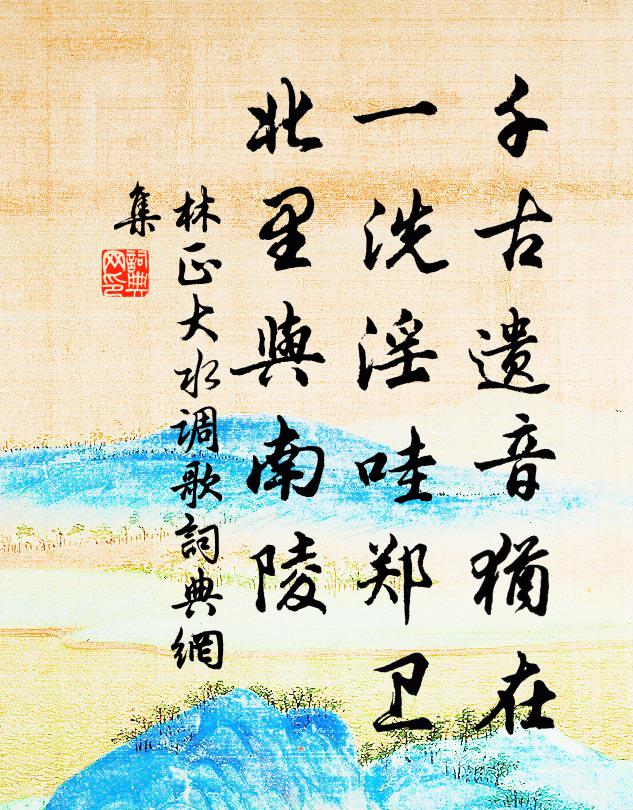 千古遗音犹在
一洗淫哇郑卫
北里與南陵
林正大水调歌詞典網
集
詞典网印